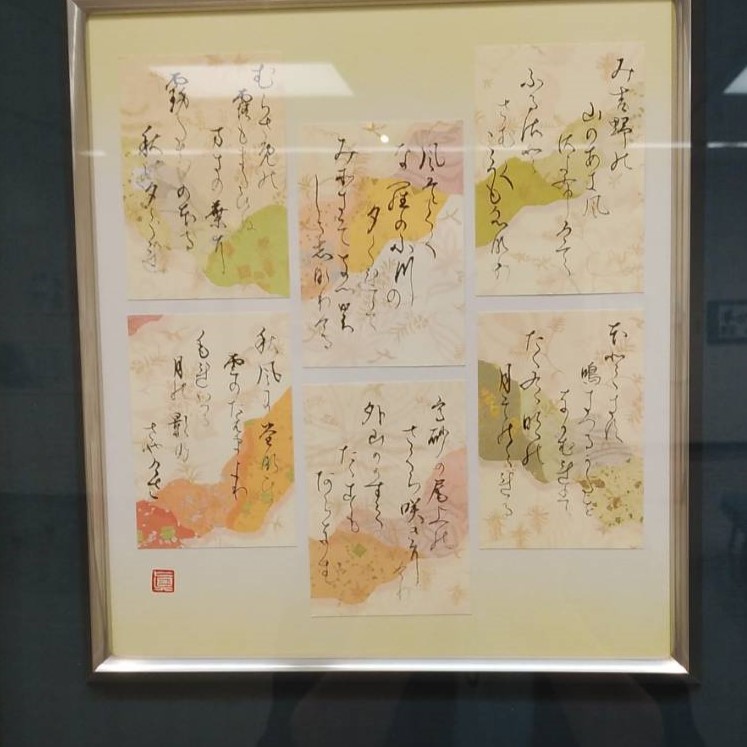 み吉野の
山のあき風
さ夜ふけて
ふるさと
さむく
ころもうつなり
ほととぎす
鳴きつるかたを
ながむれば
ただ有明の
月ぞのこれる
風そよぐ
な羅の小川の
夕ぐれは
みそぎぞ夏の
しるしなりける
高砂の尾上の
さくら咲きにけり
外山のかすみ
たたずも
あらなむ
むらさめの
露もまだひぬ
まきの葉に
霧たちのぼる
秋の夕ぐれ
秋風にたなびく
雲のたえまより
もれいづる
月の影の
さやけさ